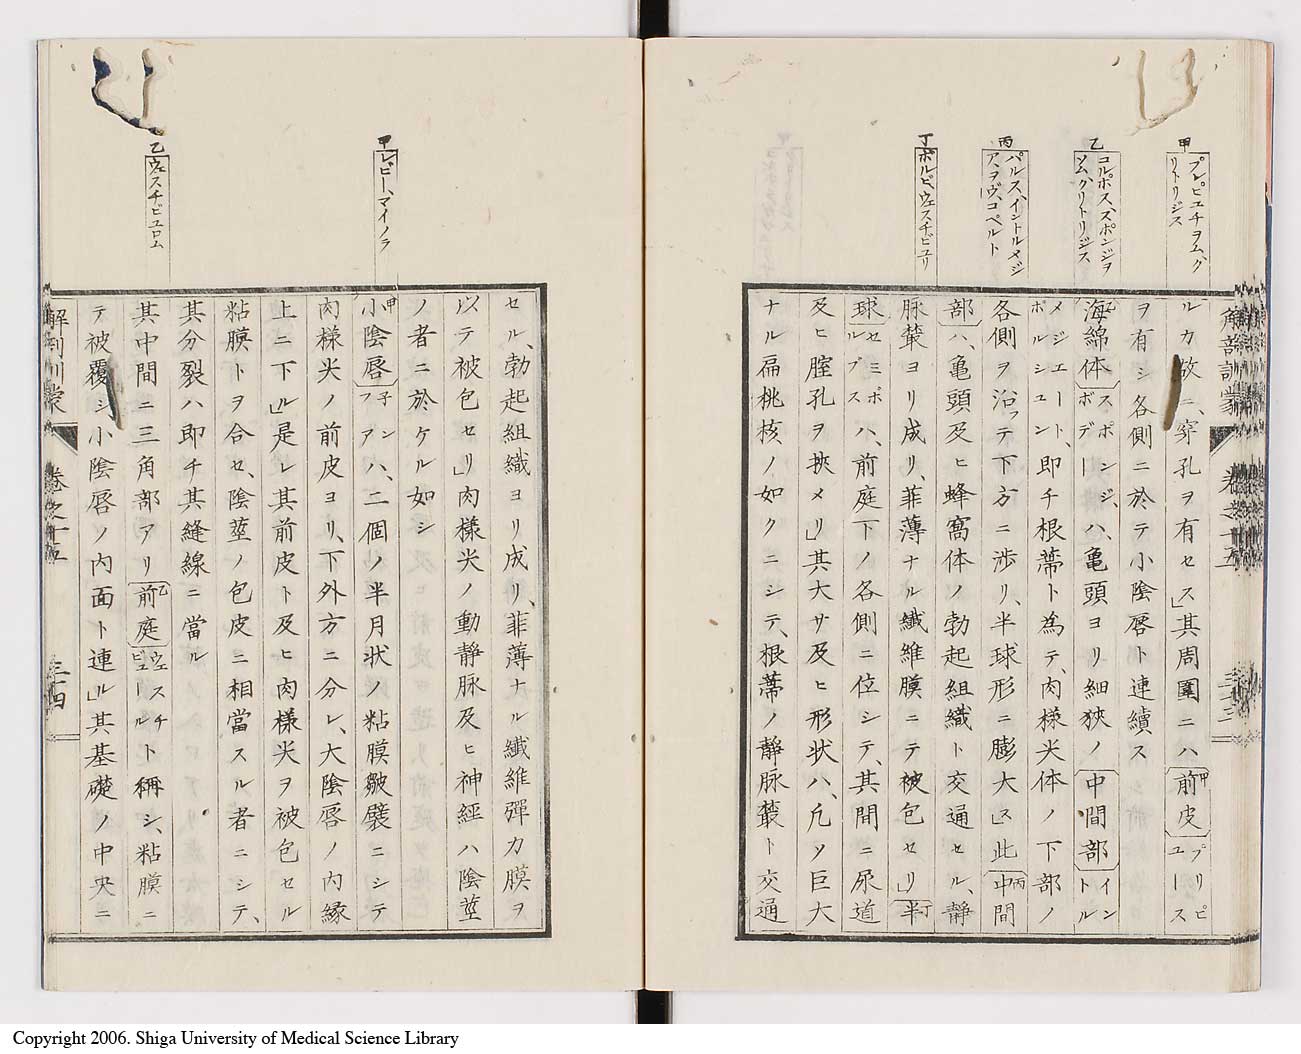 甲 プレピュチヲム、ク
リトリジス
乙 コルポス、スポンジヲ
ソム、クリトリジス
丙 パルス、イントルメジ
ア、ヲヴ、コベルト
丁 ボルビ、ウェスチビュリ
解剖訓蒙 卷之十五 三十三
ルカ故ニ、穿孔ヲ有セス」其周圍ニハ前皮プリピュース
ヲ有シ各側ニ於テ小陰唇ト連續ス
海綿体スポンジボデーハ、亀頭ヨリ細狹ノ中間部イントル
メジエート、ポルシュン即チ根蒂ト為テ、肉樣尖体ノ下部ノ
各側ヲ沿フテ下方ニ渉リ、半球形ニ膨大」ス此中間
部ハ、亀頭及ヒ蜂窩体ノ勃起組織ト交通セル、靜
脉叢ヨリ成リ、菲薄ナル纎維膜ニテ被包セリ」半
球セミボルブスハ、前庭下ノ各側ニ位シテ、其間ニ尿道
及ヒ腟孔ヲ挾メリ」其大サ及ヒ形状ハ、凢ソ巨大
ナル扁桃核ノ如クニシテ、根蒂ノ靜脉叢ト交通
甲 レビー、マイノラ
乙 ウェスチビュロム
セル、勃起組織ヨリ成リ、菲薄ナル纎維彈力膜ヲ
以テ被包セリ」肉樣尖ノ動靜脉及ヒ神經ハ陰莖
ノ者ニ於ケル如シ
小陰唇ニンフアハ、二個ノ半月状ノ粘膜皺襞ニシテ
肉樣尖ノ前皮ヨリ、下外方ニ分レ、大陰唇ノ内縁
上ニ下ル」是レ其前皮ト及ヒ肉樣尖ヲ被包セル
粘膜トヲ合セ、陰莖ノ包皮ニ相當スル者ニシテ、
其分裂ハ即チ其縫線ニ當ル
其中間ニ三角部アリ前庭ウェスチビュールト稱シ、粘膜ニ
テ被覆シ小陰唇ノ内面ト連ル」其基礎ノ中央ニ
解剖訓蒙 卷之十五 三十四
Copyright 2006. Shiga University of Medical Science Library